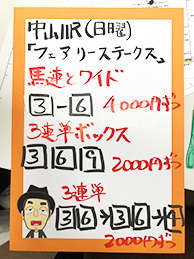 中山11R(日曜)
「フェアリーステークス」
馬連とワイド
3-6 4000円ずつ
3連単ボックス
3 6 9 2000円ずつ
3連単
36→36→4
2000円ずつ